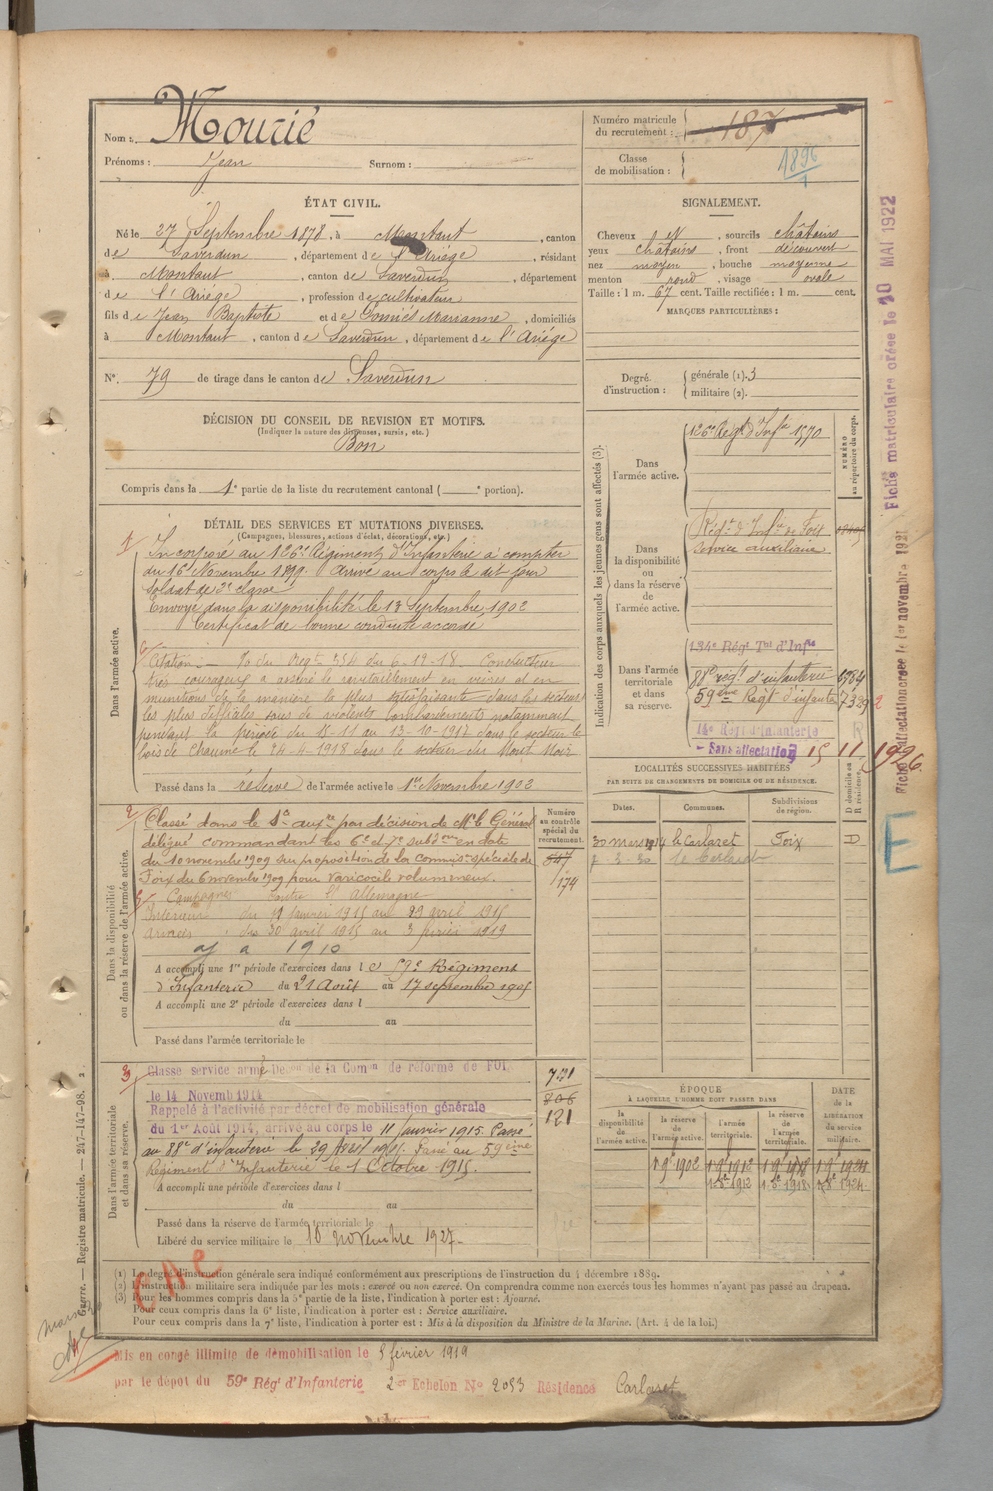 Nom : Mourié
Prénoms : Jean Surnom :
Numéro matricule du recrutement : 187
Classe de mobilisation : 1896
ÉTAT CIVIL.
Né le 27 Septembre 1878, à Montaut, canton
de Saverdun, département de l'Ariège, résidant
à Montaut, canton de Saverdun, département
de l'Ariège, profession de cultivateur
fils de Jean Baptiste et de Marianne, domiciliés
à Montaut, canton de Saverdun, département de l'Ariège
N°. 79 de tirage dans le canton de Saverdun
SIGNALEMENT.
Cheveux N, sourcils châtains
yeux châtains, front découvert
nez moyen, bouche moyenne
menton rond, visage ovale
Taille : 1 m. 67 cent. Taille rectifiée : 1 m. cent.
MARQUES PARTICULIÈRES :
Degré d'instruction : générale (1). 3
militaire (2).
DÉCISION DU CONSEIL DE REVISION ET MOTIFS.
(Indiquer la nature des dispenses, sursis, etc.)
Bon
Compris dans la 1e partie de la liste du recrutement cantonal ( e portion).
DÉTAIL DES SERVICES ET MUTATIONS DIVERSES.
(Campagnes, blessures, actions d'éclat, décorations, etc.)
Dans l'armée active.
1/
Incorporé au 126e Régiment d'Infanterie à compter
du 16 Novembre 1899 Arrivé au corps le dit jour
Soldat de 2e classe
Envoyé dans la disponibilité le 13 Septembre 1902
Certificat de bonne conduite accordé
Citation — du Regt 354 du 6-12-18. Conducteur
très courageux a assuré le ravitaillement en vivres et en
munitions de la manière la plus satisfaisante dans les secteurs
les plus difficiles sous de violents bombardements notamment
pendant la période du
bois de Chaume le 24-4-1918 dans le secteur du Mont Noir
Passé dans la réserve de l'armée active le 1er Novembre 1902
Dans la disponibilité ou dans la réserve de l'armée active.
2/
Classé dans le Sce auxre par décision de Mr le Général
délégué commandant les 6e et 7e subdons en date
du 10 novembre 1909 sur proposition de la commison spéciale de
Foix du 6 novembre 1909 pour varicocèle volumineux.
Campagnes contre l'Allemagne
Intérieur du 11 Janvier 1915 au 29 avril 1915
Armées du 30 avril 1915 au 3 février 1919
A accompli une 1re période d'exercices dans le 59e Régiment
d'Infanterie du 21 Août au 17 septembre 1905
A accompli une 2e période d'exercices dans l
du au
Passé dans l'armée territoriale le
Numéro au contrôle spécial du recrutement.
547
174
Dans l'armée territoriale et dans sa réserve.
3/
Classé service armé Deson de la Comon de réforme de FOIX
le 14 Novemb 1914
Rappelé à l'activité par décret de mobilisation générale
du 1er Août 1914, arrivé au corps le 11 janvier 1915. Passé
au 88e d'infanterie le 29 Avril 1915. Passé au 59ème
Régiment d'Infanterie le 1 Octobre 1915.
A accompli une période d'exercices dans l
du au
Passé dans la réserve de l'armée territoriale le
Libéré du service militaire le 10 novembre 1927
806
121
Indication des corps auxquels les jeunes gens sont affectés (3).
Dans l'armée active.
126e Regt d'Infie 1570
NUMÉRO au répertoire du corps.
Dans la disponibilité ou dans la réserve de l'armée active.
Régt d'Infie de Foix
service auxiliaire
Dans l'armée territoriale et dans sa réserve.
134e Régt Tal d'Infie
88e régt d'infanterie
59ème Régt d'infanterie
14e Régt d'Infanterie
- Sans affectation 15 11 1926.
LOCALITÉS SUCCESSIVES HABITÉES
PAR SUITE DE CHANGEMENTS DE DOMICILE OU DE RÉSIDENCE.
Dates. Communes. Subdivisions de région. D domicile ou R résidence.
30 mars 1914 le Carlaret Foix D
ÉPOQUE
À LAQUELLE L'HOMME DOIT PASSER DANS
la disponibilité de l'armée active. la réserve de l'armée active. l'armée territoriale. la réserve de l'armée territoriale. DATE de la LIBÉRATION du service militaire.
1 9e 1902 1 9e 1912
Fiche matriculaire créée le 20 MAI 1922
Fiche d'affectation créée le 1er novembre 1921
E
Guerre. — Registre matricule. — 247-147-98. 2
(1) Le degré d'instruction générale sera indiqué conformément aux prescriptions de l'instruction du 4 décembre 1889.
(2) L'instruction militaire sera indiquée par les mots : exercé ou non exercé. On comprendra comme non exercés tous les hommes n'ayant pas passé au drapeau.
(3) Pour les hommes compris dans la 5e partie de la liste, l'indication à porter est : Ajourné.
Pour ceux compris dans la 6e liste, l'indication à porter est : Service auxiliaire.
Pour ceux compris dans la 7e liste, l'indication à porter est : Mis à la disposition du Ministre de la Marine. (Art. 4 de la loi.)
Mis en congé illimité de démobilisation le 5 février 1919
par le dépôt du 59e Régt d'Infanterie 2e Echelon No 2053 Résidence Carlaret